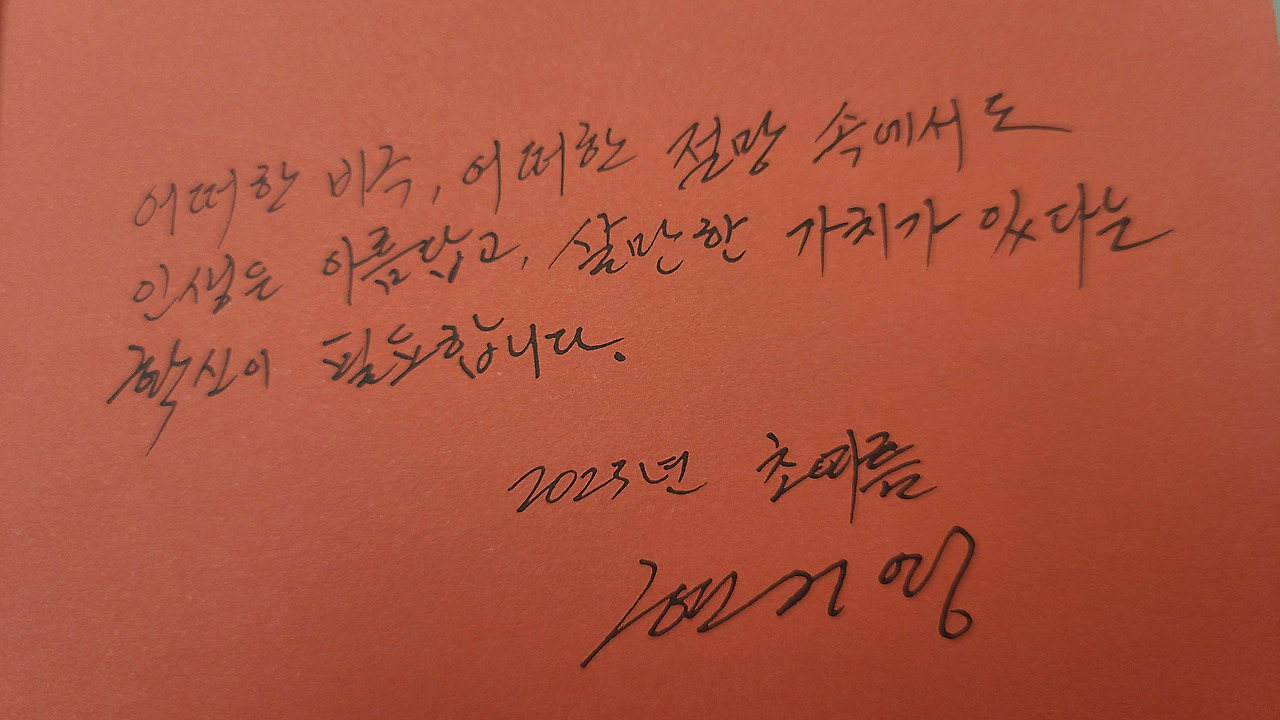 어떠한 비극, 어떠한 절망 속에서도
인생은 아름답고, 살만한 가치가 있다는
확신이 필요합니다.
2023년 초여름
현기영